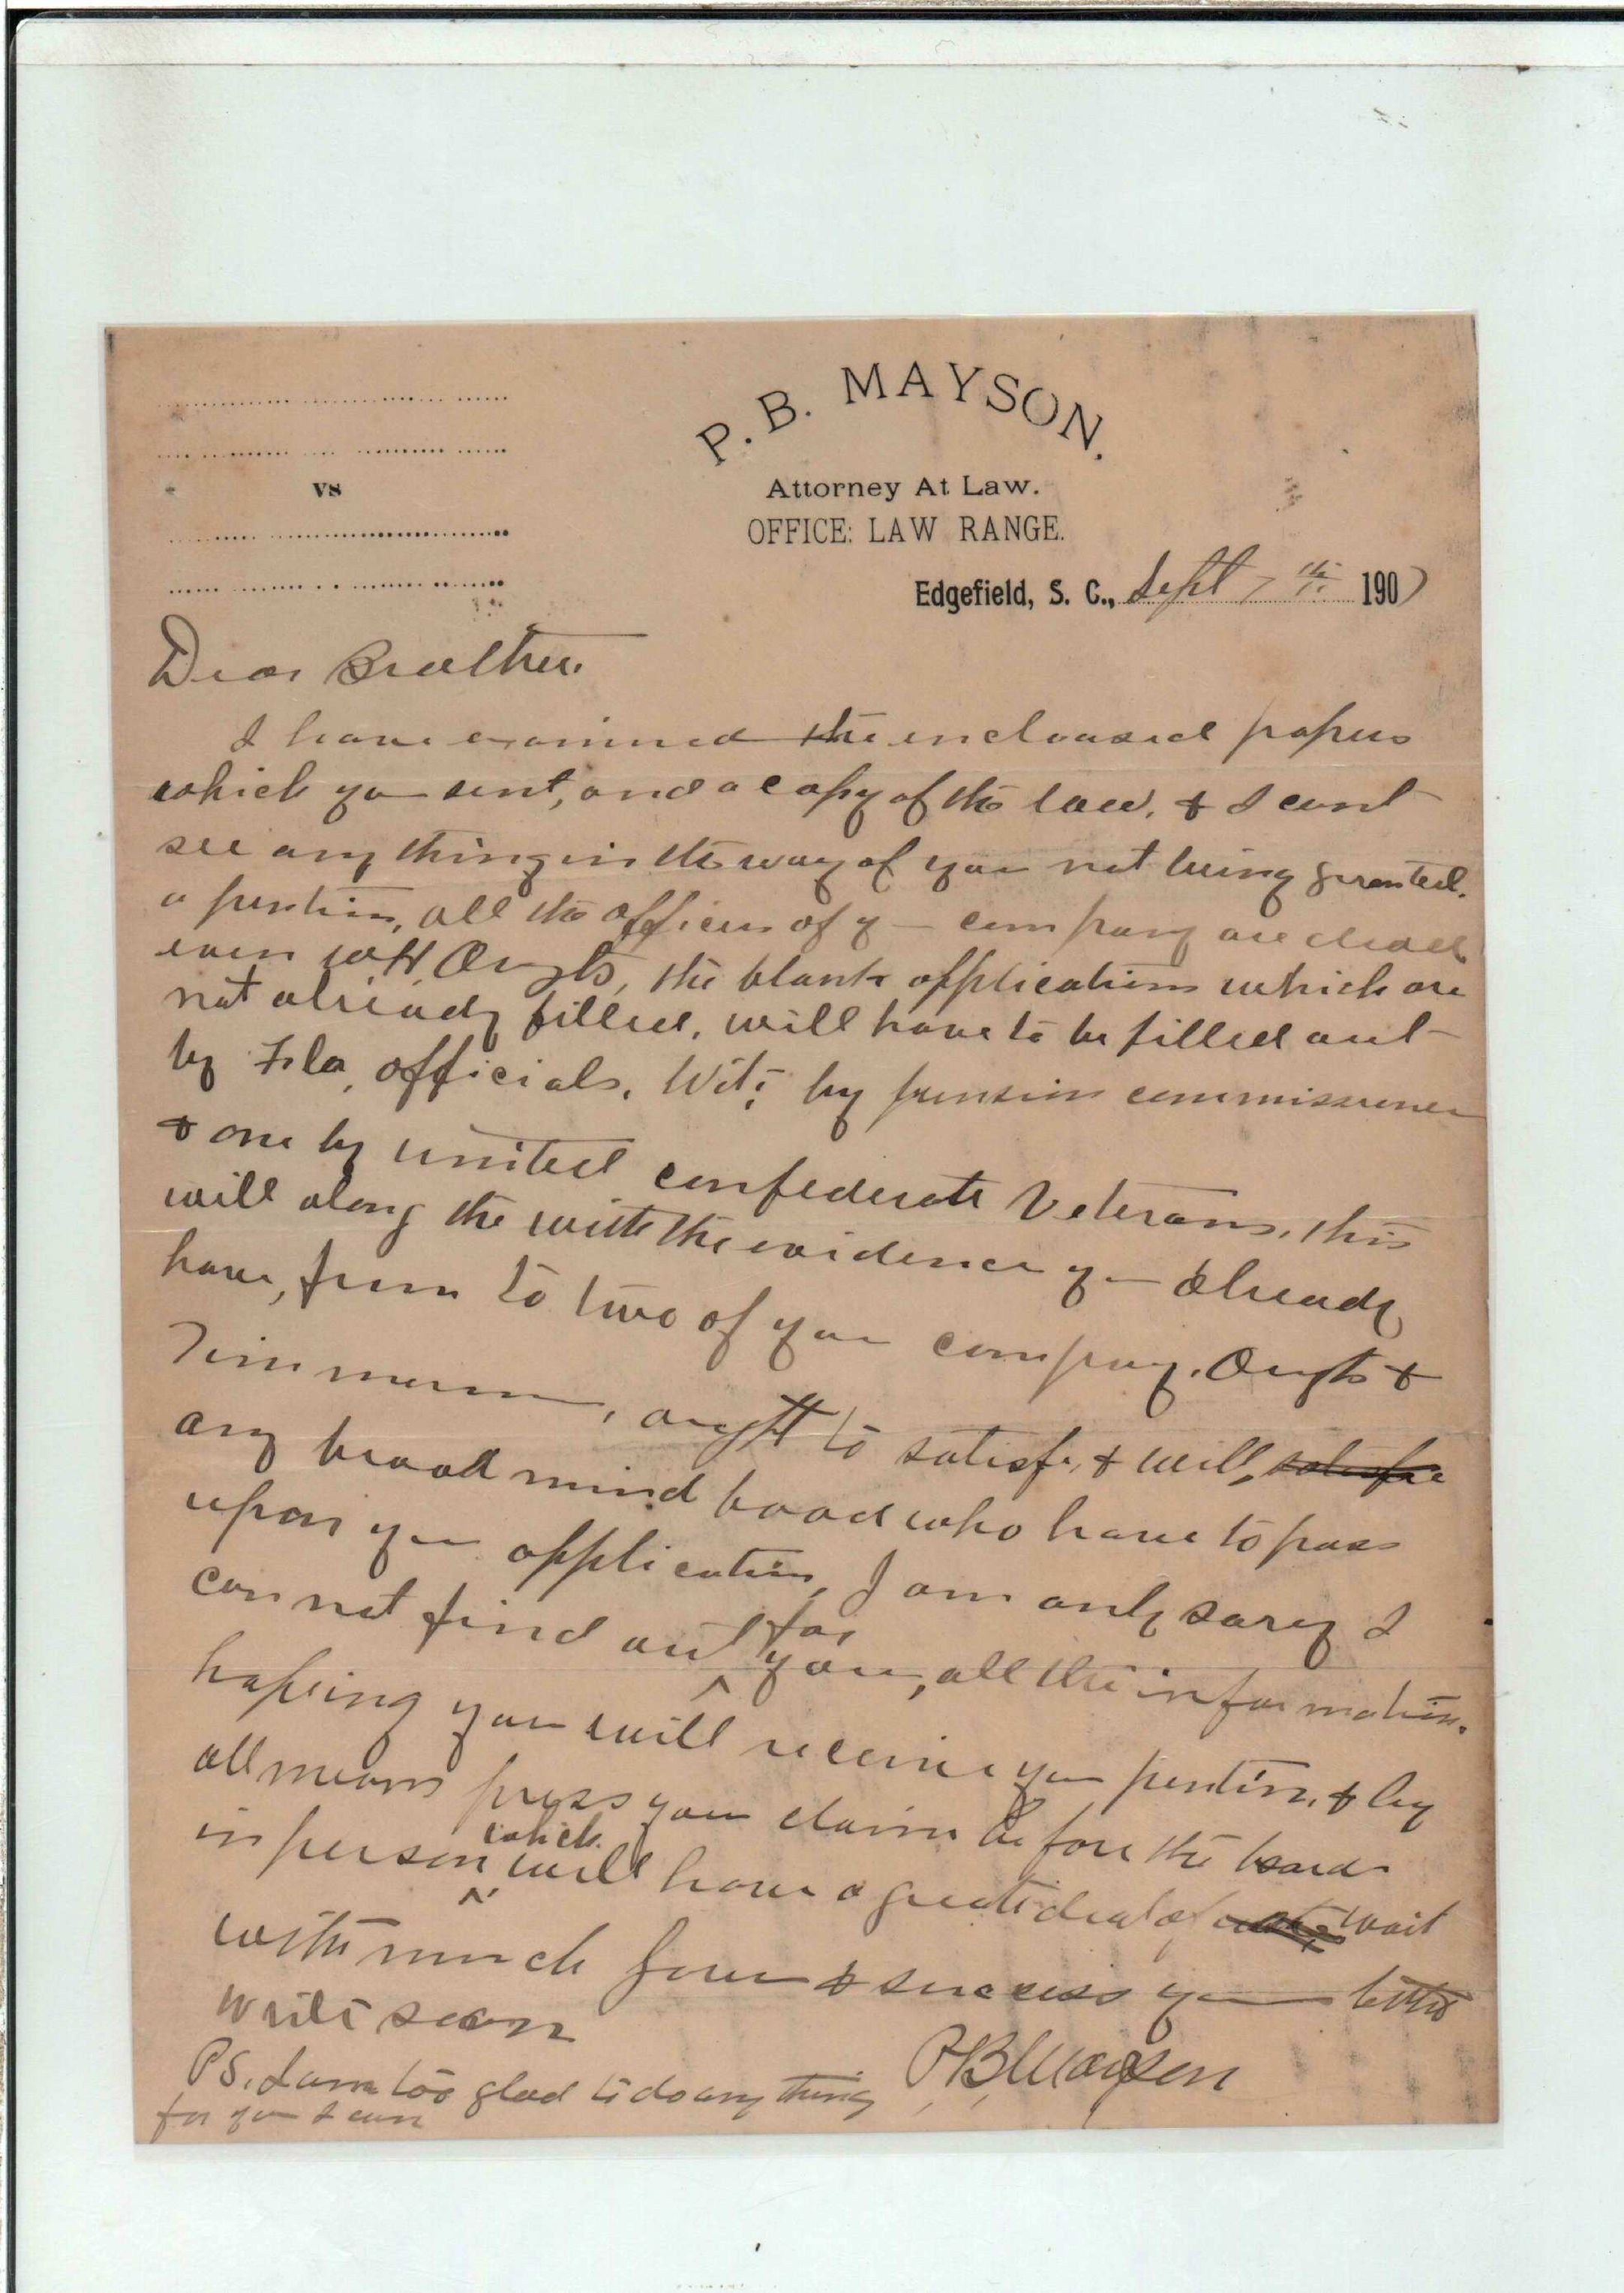 P. B. MAYSON.
Attorney At Law.
OFFICE: LAW RANGE.
vs
Edgefield, S. C., Sept 7th 1907
Dear Brother.
I have examined the encloused papers
which you sent, and a copy of the law, & I cant
see any thing in the way of you not being granted.
a pention, all the officers of y company are dead
even W H Ougts, the blank applications which are
not already filled, will have to be filled out
by Fla, officials, Wit; by pension commissioner
& one by united confederate Veterans, this
will along the with the evidence y already
have, from to two of your company. Ougts &
Timmerman, aught to satisfy, & will, satisfie
any broad mind board who have to pass
upon your application, I am only sory I
can not find out for you, all the information.
hopeing you will receive your pention, & by
all means press your claim before the board
in person which will have a great deal of wait
with much love & success your brother
write soon
P B Mayson
P S. I am too glad to do any thing
for you I can